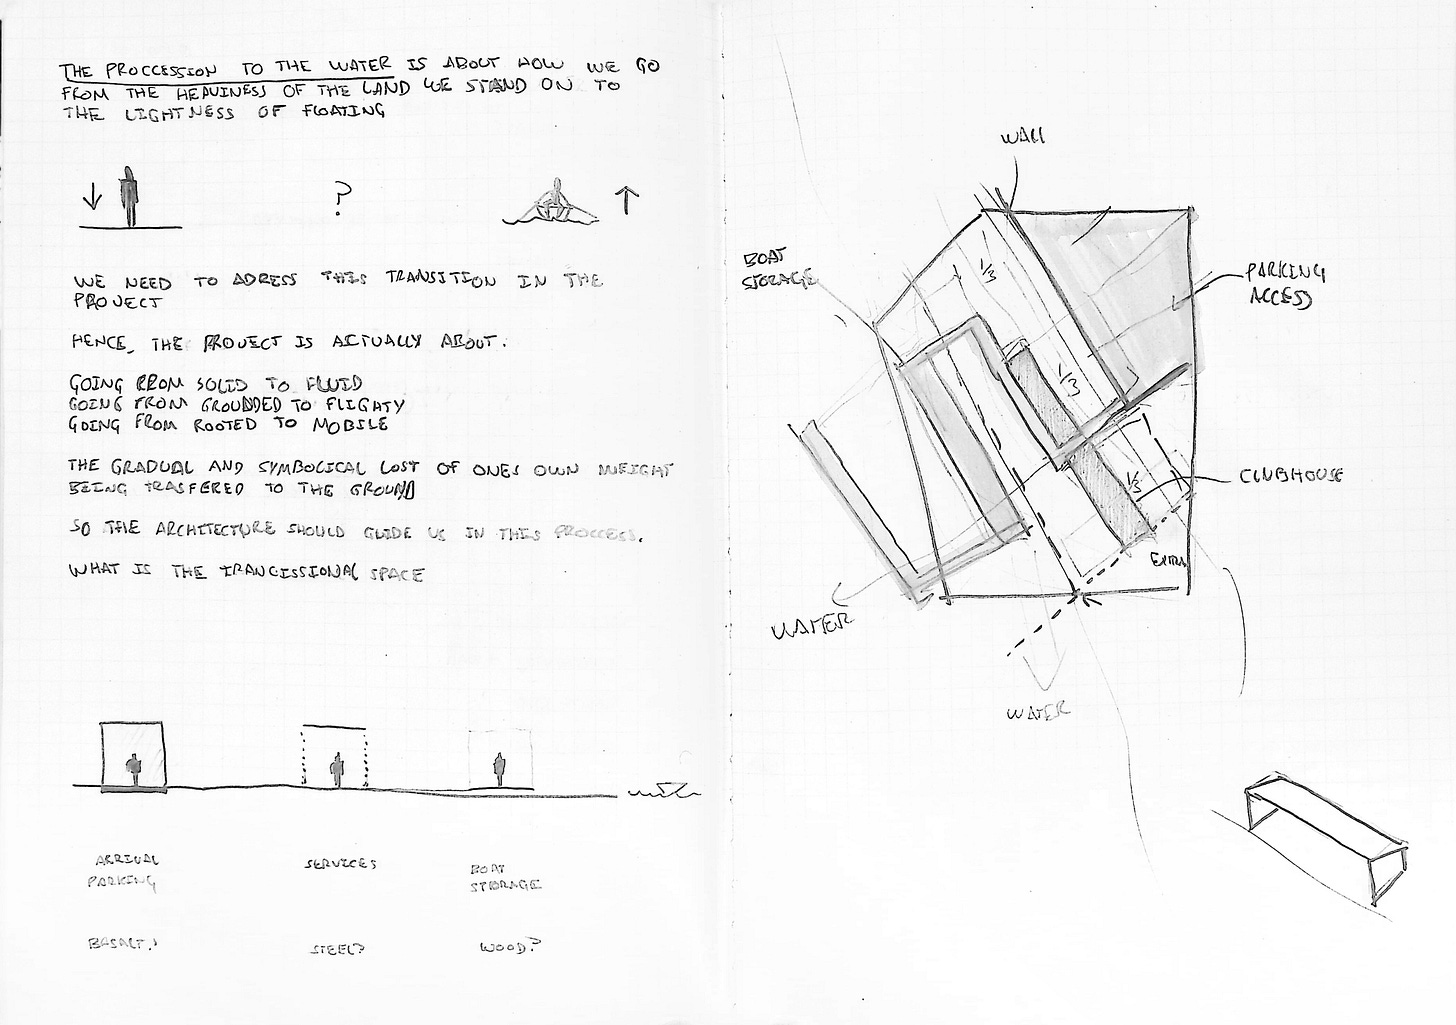 THE PROCCESSION TO THE WATER IS ABOUT HOW WE GO
FROM THE HEAVINESS OF THE LAND WE STAND ON TO
THE LIGHTNESS OF FLOATING
?
WE NEED TO ADRESS THIS TRANSITION IN THE
PROJECT
HENCE, THE PROJECT IS ACTUALLY ABOUT.
GOING FROM SOLID TO FLUID
GOING FROM GROUNDED TO FLIGHTY
GOING FROM ROOTED TO MOBILE
THE GRADUAL AND SYMBOLICAL LOST OF ONES OWN WEIGHT
BEING TRASFERED TO THE GROUND
SO THE ARCHITECTURE SHOULD GUIDE US IN THIS PROCCESS.
WHAT IS THE TRANCISSIONAL SPACE
ARRIVAL
PARKING
SERVICES
BOAT
STORAGE
BASALT?
STEEL?
WOOD?
WALL
BOAT
STORAGE
1/3
PARKING
ACCESS
1/3
1/3
CLUBHOUSE
EXTRA
WATER
WATER